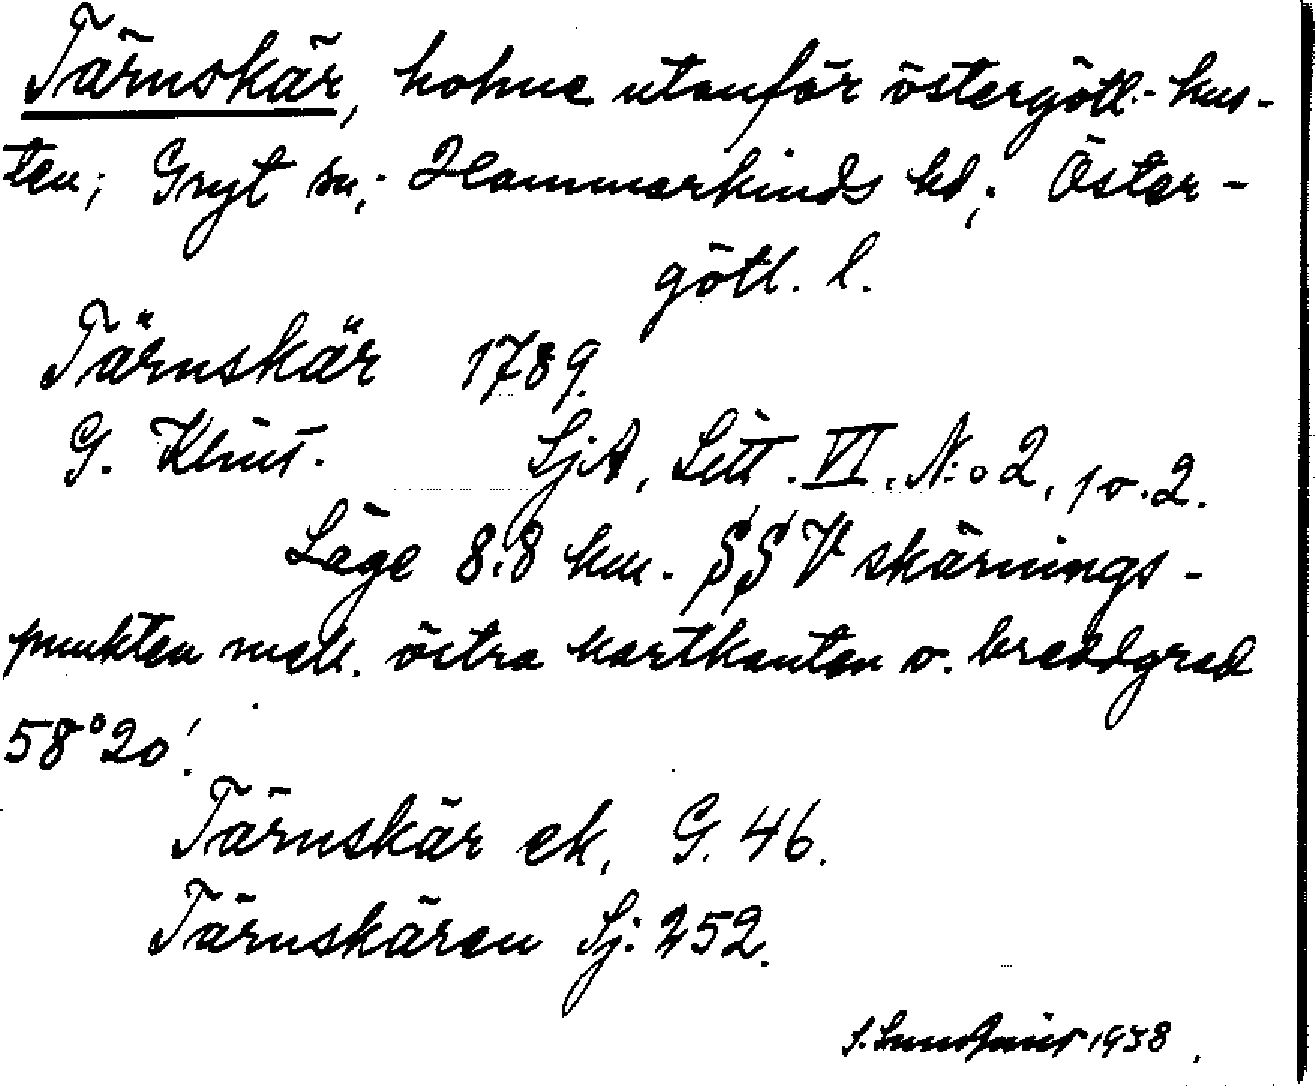 Tärnskär, holme utanför östergötl. kus-
ten; Gryt sn; Hammarkinds hd; Öster-
götl. l.
Tärnskär 1789.
G. Klint. SjA, Litt. VI. N:o 2, 1o.2.
Läge 8.8 km. SSV skärnings-
punkten mell. östra kartkanten o. breddgrad
58°20'.
Tärnskär ek, G. 46.
Tärnskären Sj: 252.
1938.